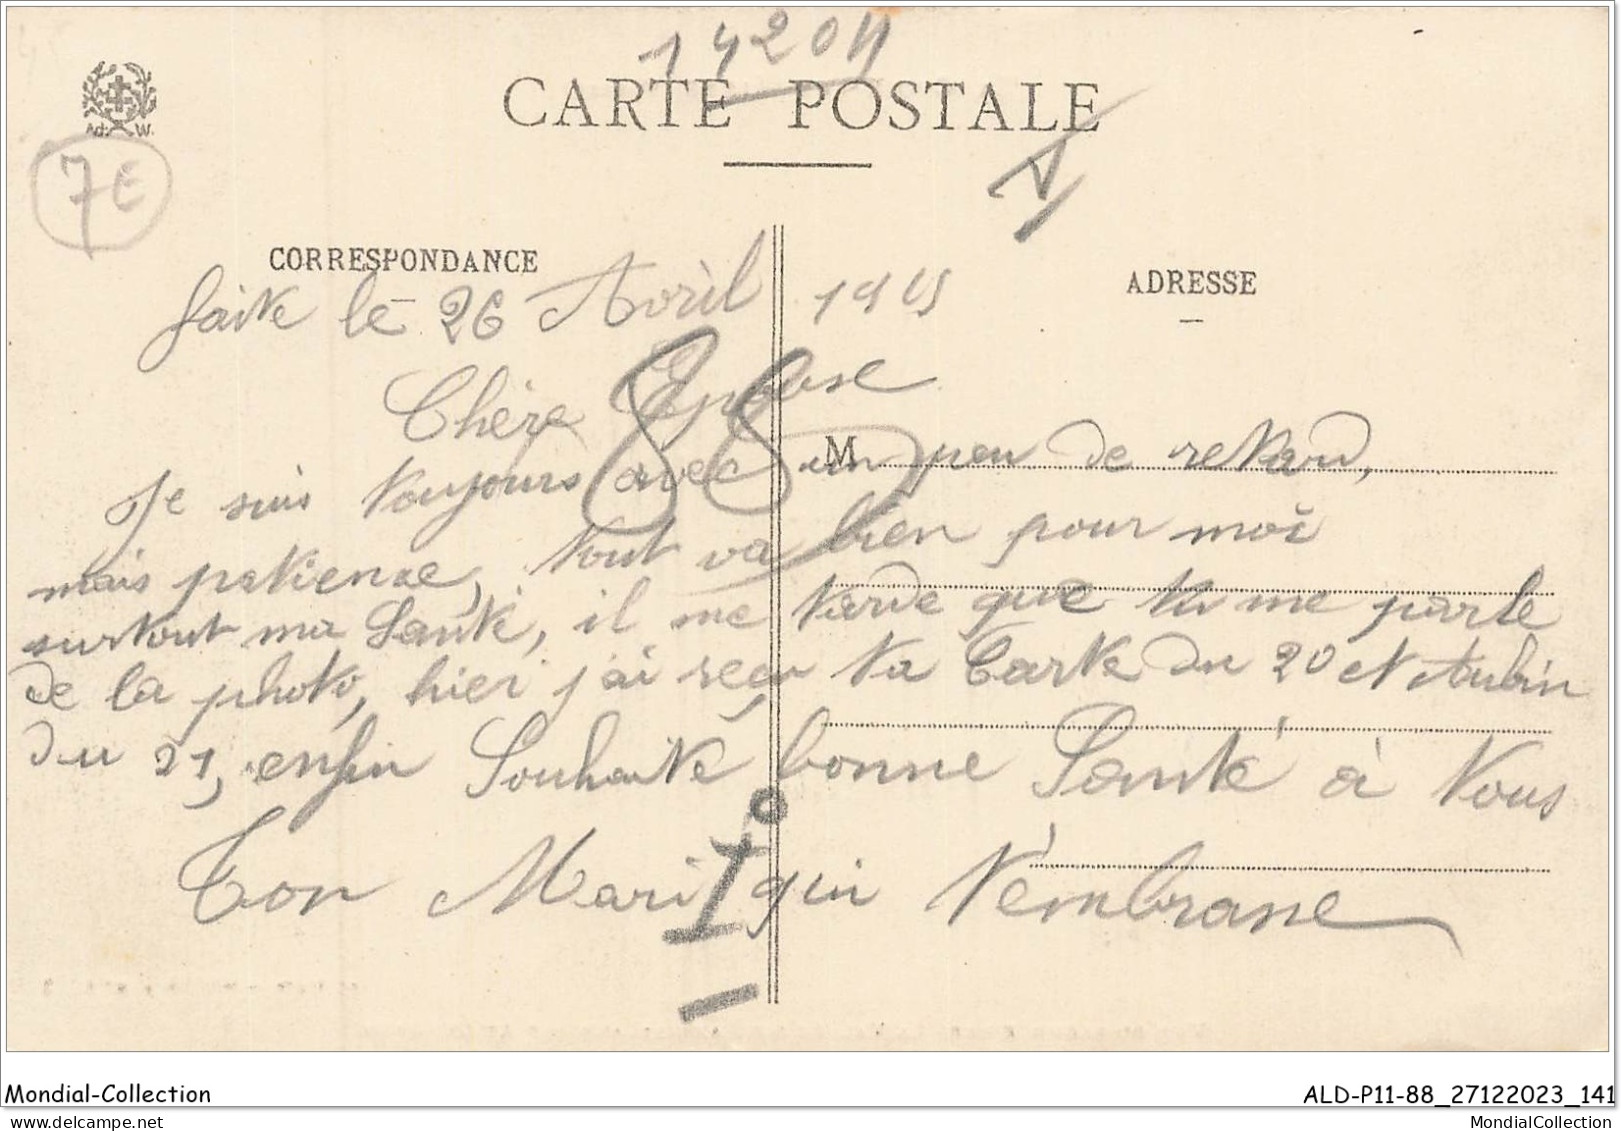 14204
CARTE POSTALE
Ad. W.
7E
CORRESPONDANCE
ADRESSE
faite le 26 Avril 1915
Chère Epouse
88
M
Je suis toujours avec un peu de retard,
mais patience, tout va bien pour moi
surtout ma Santé, il me tarde que tu me parle
de la photo, hier j'ai reçu ta Carte du 20 et Aubin
du 21, enfin Souhaité bonne Santé à Vous
Ton Mari qui t'embrasse
Mondial-Collection
ALD-P11-88_27122023_141
MondialCollection.com